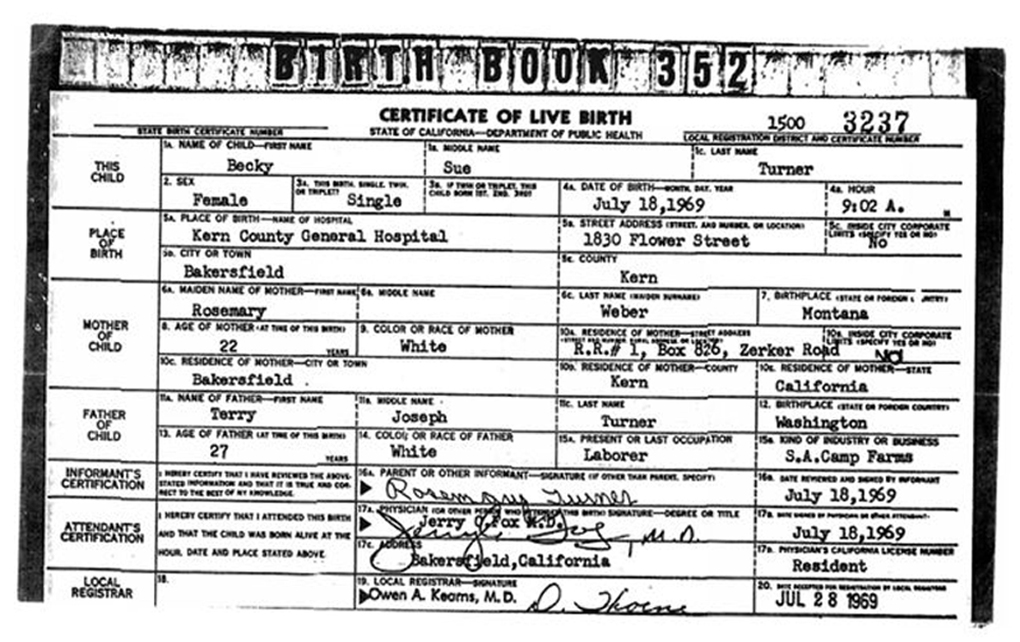 BIRTH BOOK 352
CERTIFICATE OF LIVE BIRTH
STATE OF CALIFORNIA—DEPARTMENT OF PUBLIC HEALTH
1500 3237
STATE BIRTH CERTIFICATE NUMBER
LOCAL REGISTRATION DISTRICT AND CERTIFICATE NUMBER
THIS CHILD
1A. NAME OF CHILD—FIRST NAME
Becky
MIDDLE NAME
Sue
1C. LAST NAME
Turner
2. SEX
Female
3A. THIS BIRTH, SINGLE, TWIN, OR TRIPLET?
Single
IF TWIN OR TRIPLET, THIS CHILD BORN 1ST, 2ND, 3RD?
4A. DATE OF BIRTH—MONTH, DAY, YEAR
July 18,1969
HOUR
9:02 A. M
PLACE OF BIRTH
5A. PLACE OF BIRTH—NAME OF HOSPITAL
Kern County General Hospital
STREET ADDRESS (STREET, AND NUMBER, OR LOCATION)
1830 Flower Street
5C. INSIDE CITY CORPORATE LIMITS (SPECIFY YES OR NO)
No
CITY OR TOWN
Bakersfield
COUNTY
Kern
MOTHER OF CHILD
6A. MAIDEN NAME OF MOTHER—FIRST NAME
Rosemary
MIDDLE NAME
6C. LAST NAME (MAIDEN SURNAME)
Weber
7. BIRTHPLACE (STATE OR FOREIGN
Montana
8. AGE OF MOTHER (AT TIME OF THIS BIRTH)
22 YEARS
9. COLOR OR RACE OF MOTHER
White
10A. RESIDENCE OF MOTHER—STREET ADDRESS
R.R.# 1, Box 826, Zerker Road
INSIDE CITY CORPORATE LIMITS (SPECIFY YES OR NO)
NO
10C. RESIDENCE OF MOTHER—CITY OR TOWN
Bakersfield .
RESIDENCE OF MOTHER—COUNTY
Kern
RESIDENCE OF MOTHER—STATE
California
FATHER OF CHILD
11A. NAME OF FATHER—FIRST NAME
Terry
MIDDLE NAME
Joseph
11C. LAST NAME
Turner
12. BIRTHPLACE (STATE OR FOREIGN COUNTRY)
Washington
13. AGE OF FATHER (AT TIME OF THIS BIRTH)
27 YEARS
14. COLOR OR RACE OF FATHER
White
15A. PRESENT OR LAST OCCUPATION
Laborer
KIND OF INDUSTRY OR BUSINESS
S.A.Camp Farms
INFORMANT'S CERTIFICATION
I HEREBY CERTIFY THAT I HAVE REVIEWED THE ABOVE-STATED INFORMATION AND THAT IT IS TRUE AND CORRECT TO THE BEST OF MY KNOWLEDGE.
16A. PARENT OR OTHER INFORMANT—SIGNATURE (IF OTHER THAN PARENT, SPECIFY)
Rosemary Turner
DATE REVIEWED AND SIGNED BY INFORMANT
July 18,1969
ATTENDANT'S CERTIFICATION
I HEREBY CERTIFY THAT I ATTENDED THIS BIRTH AND THAT THE CHILD WAS BORN ALIVE AT THE HOUR, DATE AND PLACE STATED ABOVE.
17A. PHYSICIAN (OR OTHER PERSON WHO ATTENDED THIS BIRTH) SIGNATURE—DEGREE OR TITLE
Jerry Fox M.D.
M.D.
DATE SIGNED BY PHYSICIAN OR OTHER ATTENDANT
July 18,1969
17C. ADDRESS
Bakersfield,California
PHYSICIAN'S CALIFORNIA LICENSE NUMBER
Resident
LOCAL REGISTRAR
18.
19. LOCAL REGISTRAR—SIGNATURE
Owen A. Kearns, M.D. D. Thorne
20. DATE ACCEPTED FOR REGISTRATION BY LOCAL REGISTRAR
JUL 28 1969